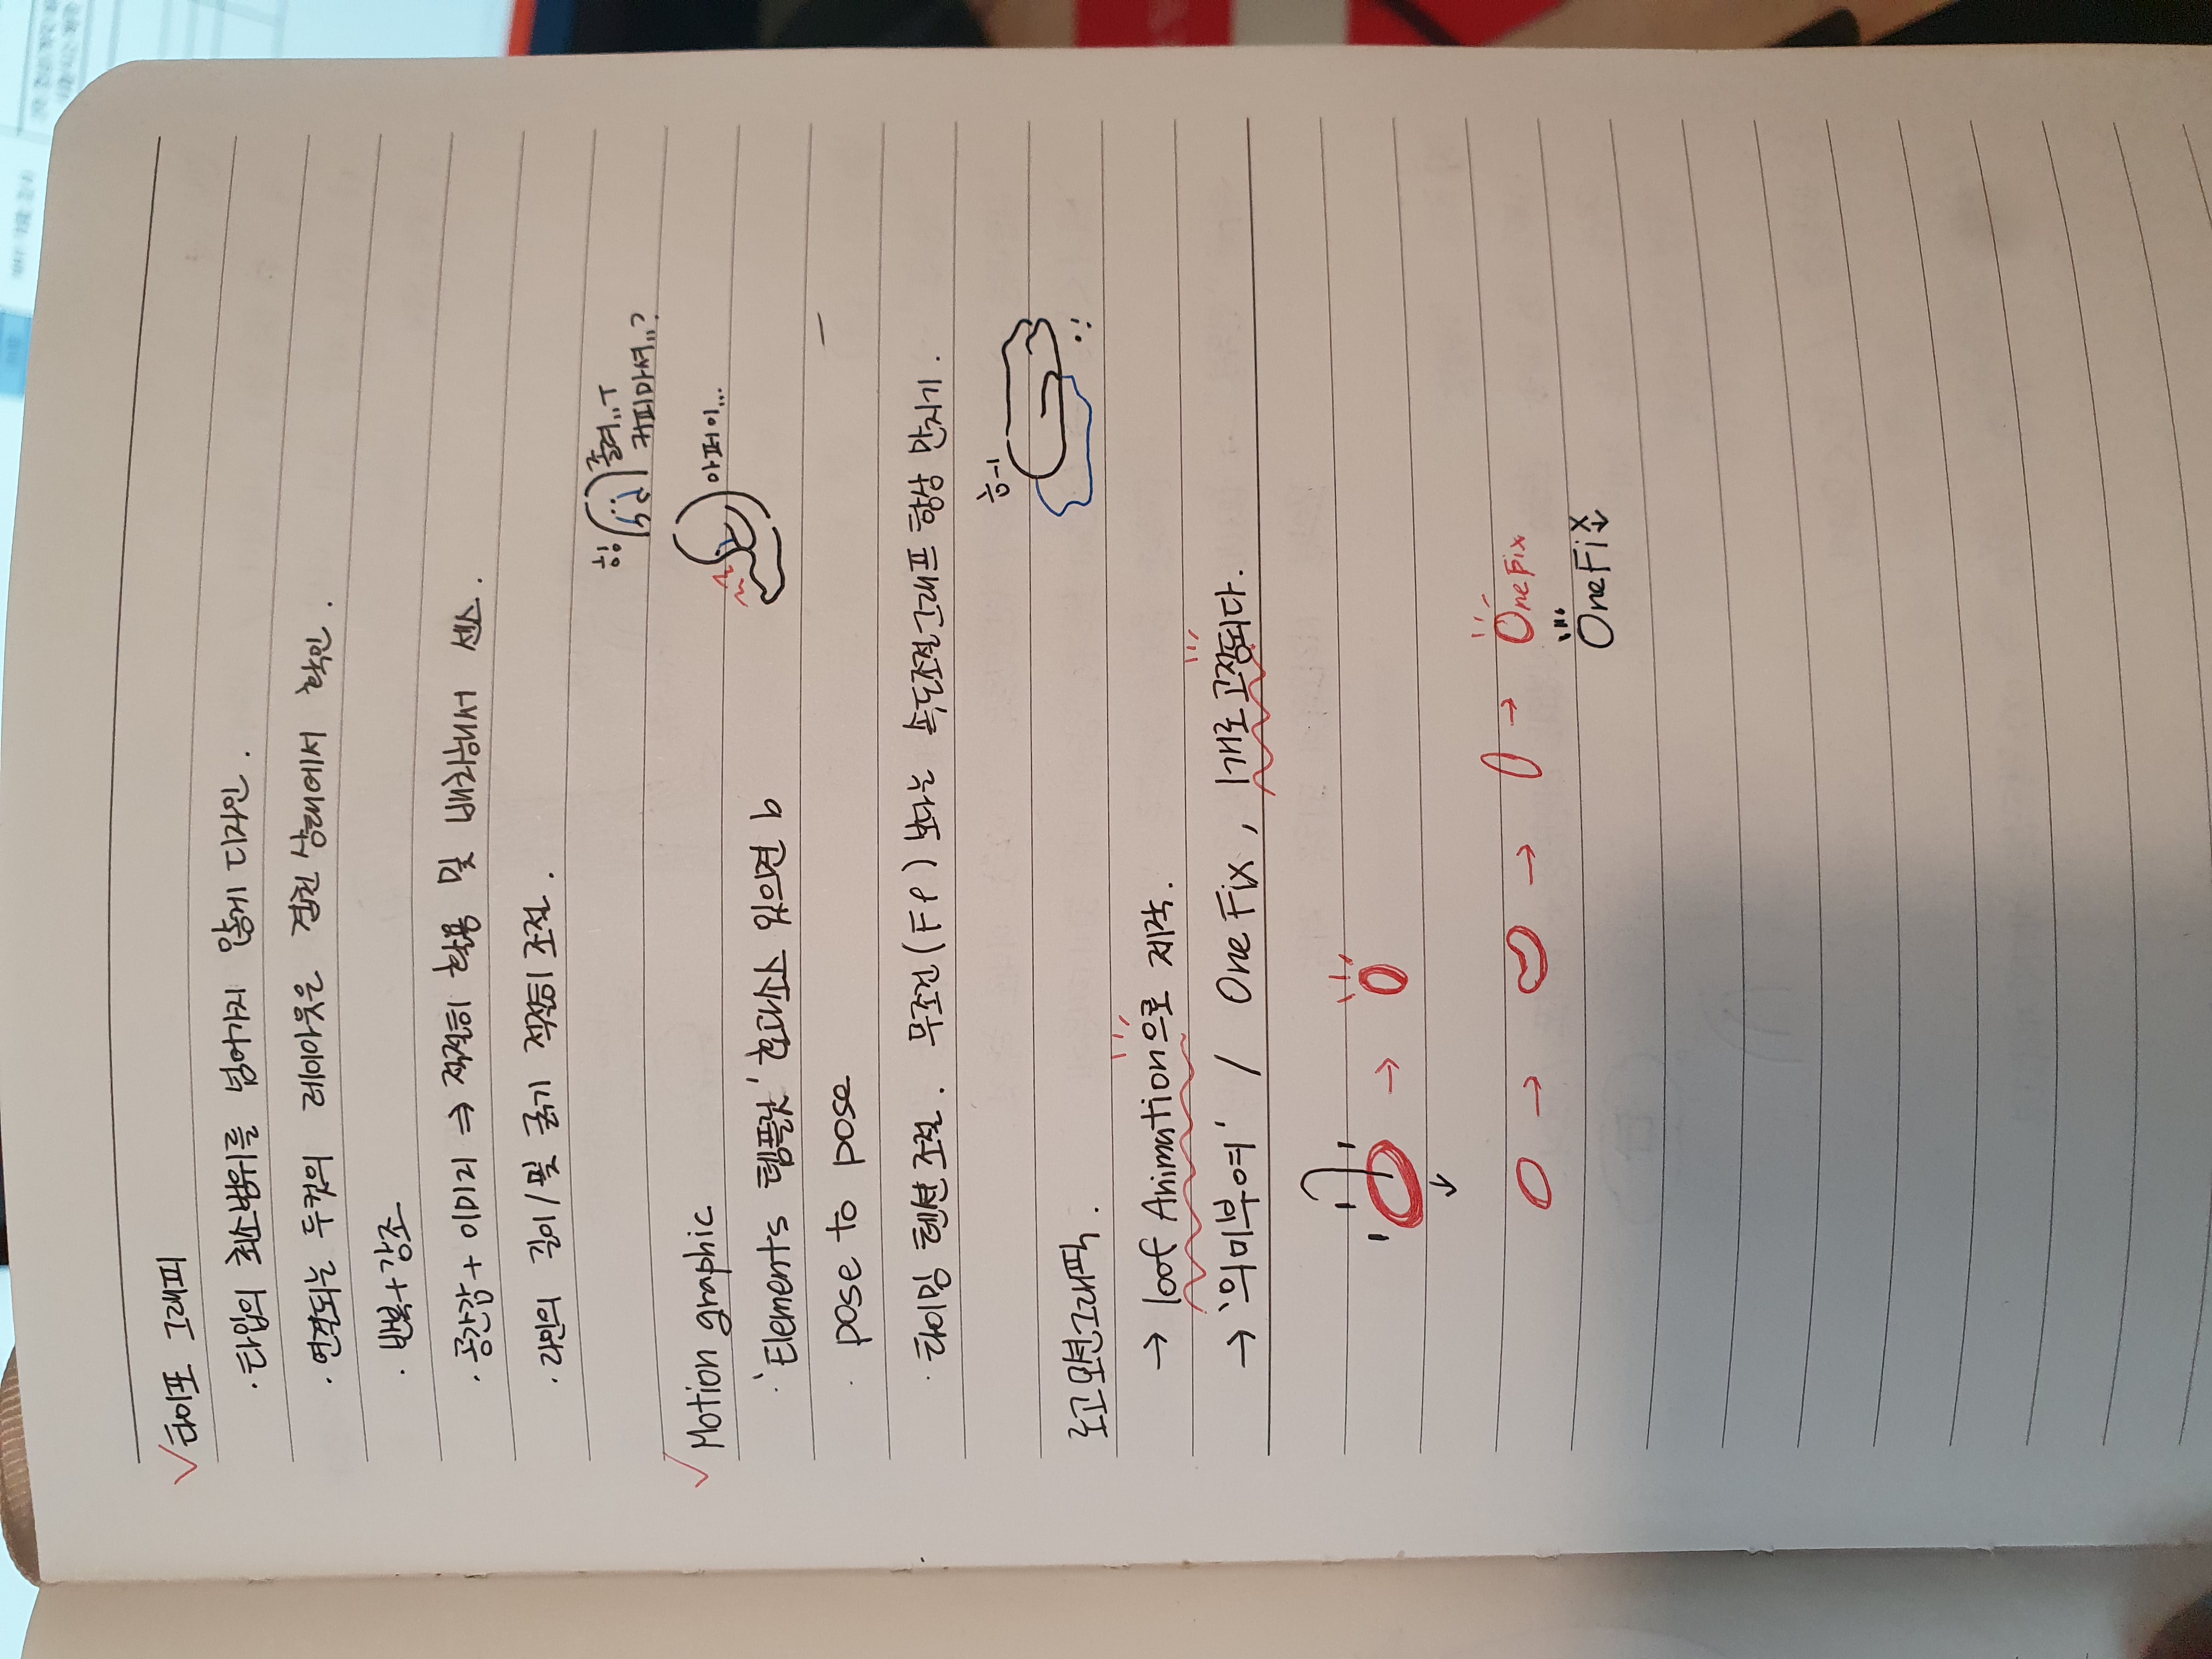 타이포 그래피
· 타입의 최소범위를 넘어가지 않게 디자인.
· 연결되는 두컷의 레이아웃은 겹친 상태에서 확인.
· 반복+강조
· 공간감+이미지 ⇒ 적절히 활용 및 배치해서 센스.
· 라인의 길이/및 굵기 적절히 조절.
힝 졸려..ㅜ
커피마셔..?
Motion graphic
아퍼이...
· 'Elements 템플릿' 효과소스 있으면 b
· pose to pose
· 타이밍 텐션 조절. 무조건(F9) 보다는 속도조절그래프 항상 만지기.
흐-ㅣ
로고 모션그래픽.
→ loof Animation으로 제작.
→ '의미부여' / One Fix, 1개로 고정되다.
→
→ → → OneFix
OneFix